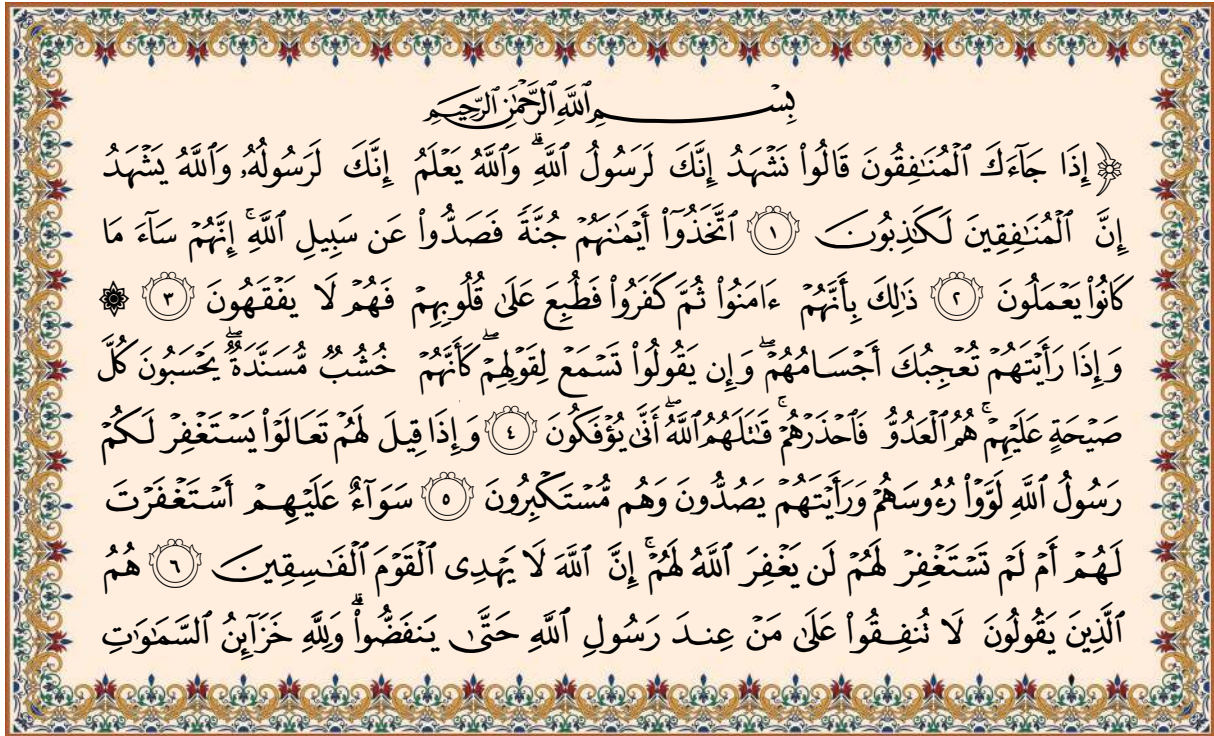 بِسْمِ ٱللَّهِ ٱلرَّحْمَٰنِ ٱلرَّحِيمِ
﴿ إِذَا جَآءَكَ ٱلْمُنَٰفِقُونَ قَالُوا۟ نَشْهَدُ إِنَّكَ لَرَسُولُ ٱللَّهِ ۗ وَٱللَّهُ يَعْلَمُ إِنَّكَ لَرَسُولُهُۥ وَٱللَّهُ يَشْهَدُ
إِنَّ ٱلْمُنَٰفِقِينَ لَكَٰذِبُونَ ﴿١﴾ ٱتَّخَذُوٓا۟ أَيْمَٰنَهُمْ جُنَّةً فَصَدُّوا۟ عَن سَبِيلِ ٱللَّهِ ۚ إِنَّهُمْ سَآءَ مَا
كَانُوا۟ يَعْمَلُونَ ﴿٢﴾ ذَٰلِكَ بِأَنَّهُمْ ءَامَنُوا۟ ثُمَّ كَفَرُوا۟ فَطُبِعَ عَلَىٰ قُلُوبِهِمْ فَهُمْ لَا يَفْقَهُونَ ﴿٣﴾ ۞
وَإِذَا رَأَيْتَهُمْ تُعْجِبُكَ أَجْسَامُهُمْ ۖ وَإِن يَقُولُوا۟ تَسْمَعْ لِقَوْلِهِمْ ۖ كَأَنَّهُمْ خُشُبٌ مُّسَنَّدَةٌ ۖ يَحْسَبُونَ كُلَّ
صَيْحَةٍ عَلَيْهِمْ ۚ هُمُ ٱلْعَدُوُّ فَٱحْذَرْهُمْ ۚ قَٰتَلَهُمُ ٱللَّهُ ۖ أَنَّىٰ يُؤْفَكُونَ ﴿٤﴾ وَإِذَا قِيلَ لَهُمْ تَعَالَوْا۟ يَسْتَغْفِرْ لَكُمْ
رَسُولُ ٱللَّهِ لَوَّوْا۟ رُءُوسَهُمْ وَرَأَيْتَهُمْ يَصُدُّونَ وَهُم مُّسْتَكْبِرُونَ ﴿٥﴾ سَوَآءٌ عَلَيْهِمْ أَسْتَغْفَرْتَ
لَهُمْ أَمْ لَمْ تَسْتَغْفِرْ لَهُمْ لَن يَغْفِرَ ٱللَّهُ لَهُمْ ۚ إِنَّ ٱللَّهَ لَا يَهْدِى ٱلْقَوْمَ ٱلْفَٰسِقِينَ ﴿٦﴾ هُمُ
ٱلَّذِينَ يَقُولُونَ لَا تُنفِقُوا۟ عَلَىٰ مَنْ عِندَ رَسُولِ ٱللَّهِ حَتَّىٰ يَنفَضُّوا۟ ۗ وَلِلَّهِ خَزَآئِنُ ٱلسَّمَٰوَٰتِ